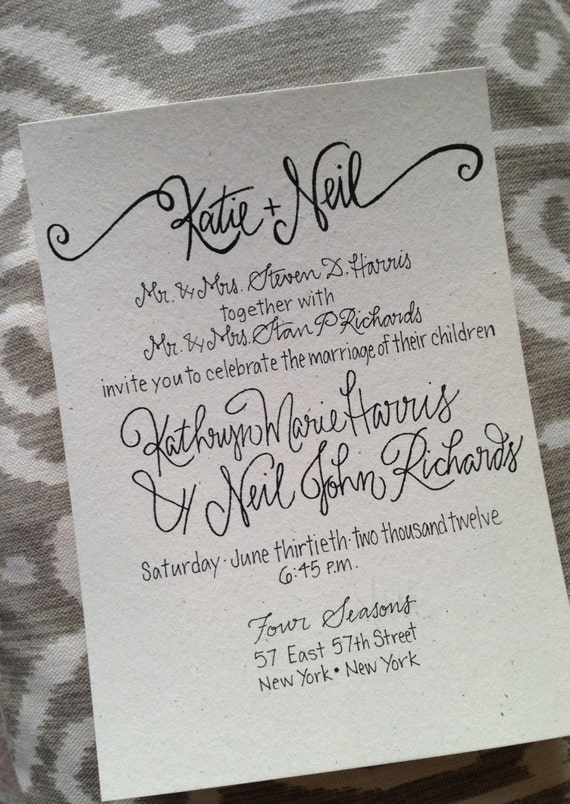 Katie + Neil
Mr. & Mrs. Steven D. Harris
together with
Mr. & Mrs. Stan P Richards
invite you to celebrate the marriage of their children
Kathryn Marie Harris
& Neil John Richards
Saturday · June thirtieth · two thousand twelve
6:45 P.M.
Four Seasons
57 East 57th Street
New York • New York